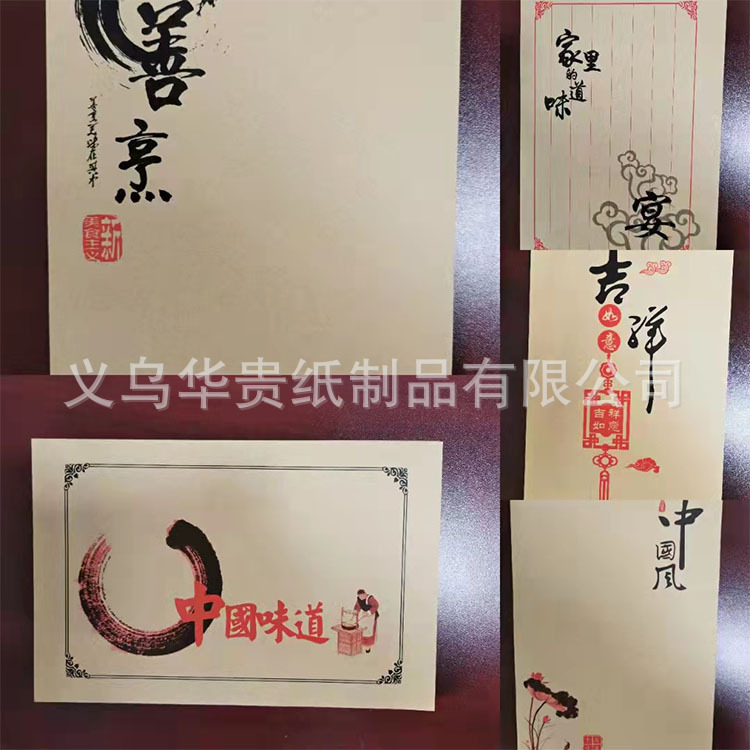 善烹
家里的味道
宴
吉祥
如意
吉祥
如意
义乌华贵纸制品有限公司
中國味道
中國风